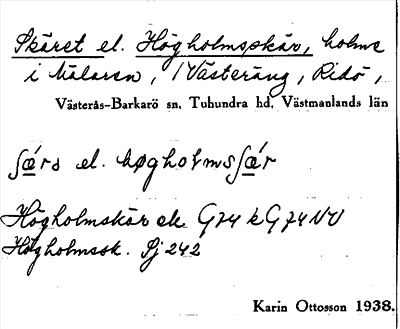 Skäret el. Högholmsskär, holme
i Mälaren, /Västeräng, Ridö,
Västerås-Barkarö sn, Tuhundra hd, Västmanlands län
ʃæ̀rə el. høgholmsʃæ̀r
Högholmskär ek G74 k G74NV
Högholmssk. Sj 242
Karin Ottosson 1938.